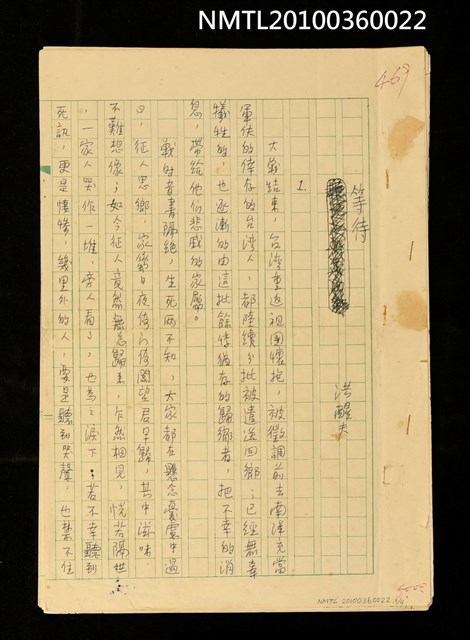 NMTL20100360022
469
等待
洪醒夫
1.
大戰結束，台灣重返祖國懷抱，被徵調前去南洋充當
軍伕的倖存的台灣人，都陸續分批被遣送回鄉；已經無辜
犧牲的，也逐漸的由這批餘悸猶存的歸鄉者，把不幸的消
息，帶給他們悲戚的家屬。
戰時音書隔絕，生死兩不知，大家都在懸念憂慮中過
日，征人思鄉，家鄉日夜倚門倚閭望君早歸，其中滋味
不難想像；如今征人竟然無恙歸來，乍然相見，恍若隔世
，一家人哭作一堆，旁人看了，也為之淚下；若不幸聽到
死訊，更是悽慘，幾里外的人，要是聽到哭聲，也禁不住
NMTL 20100360022